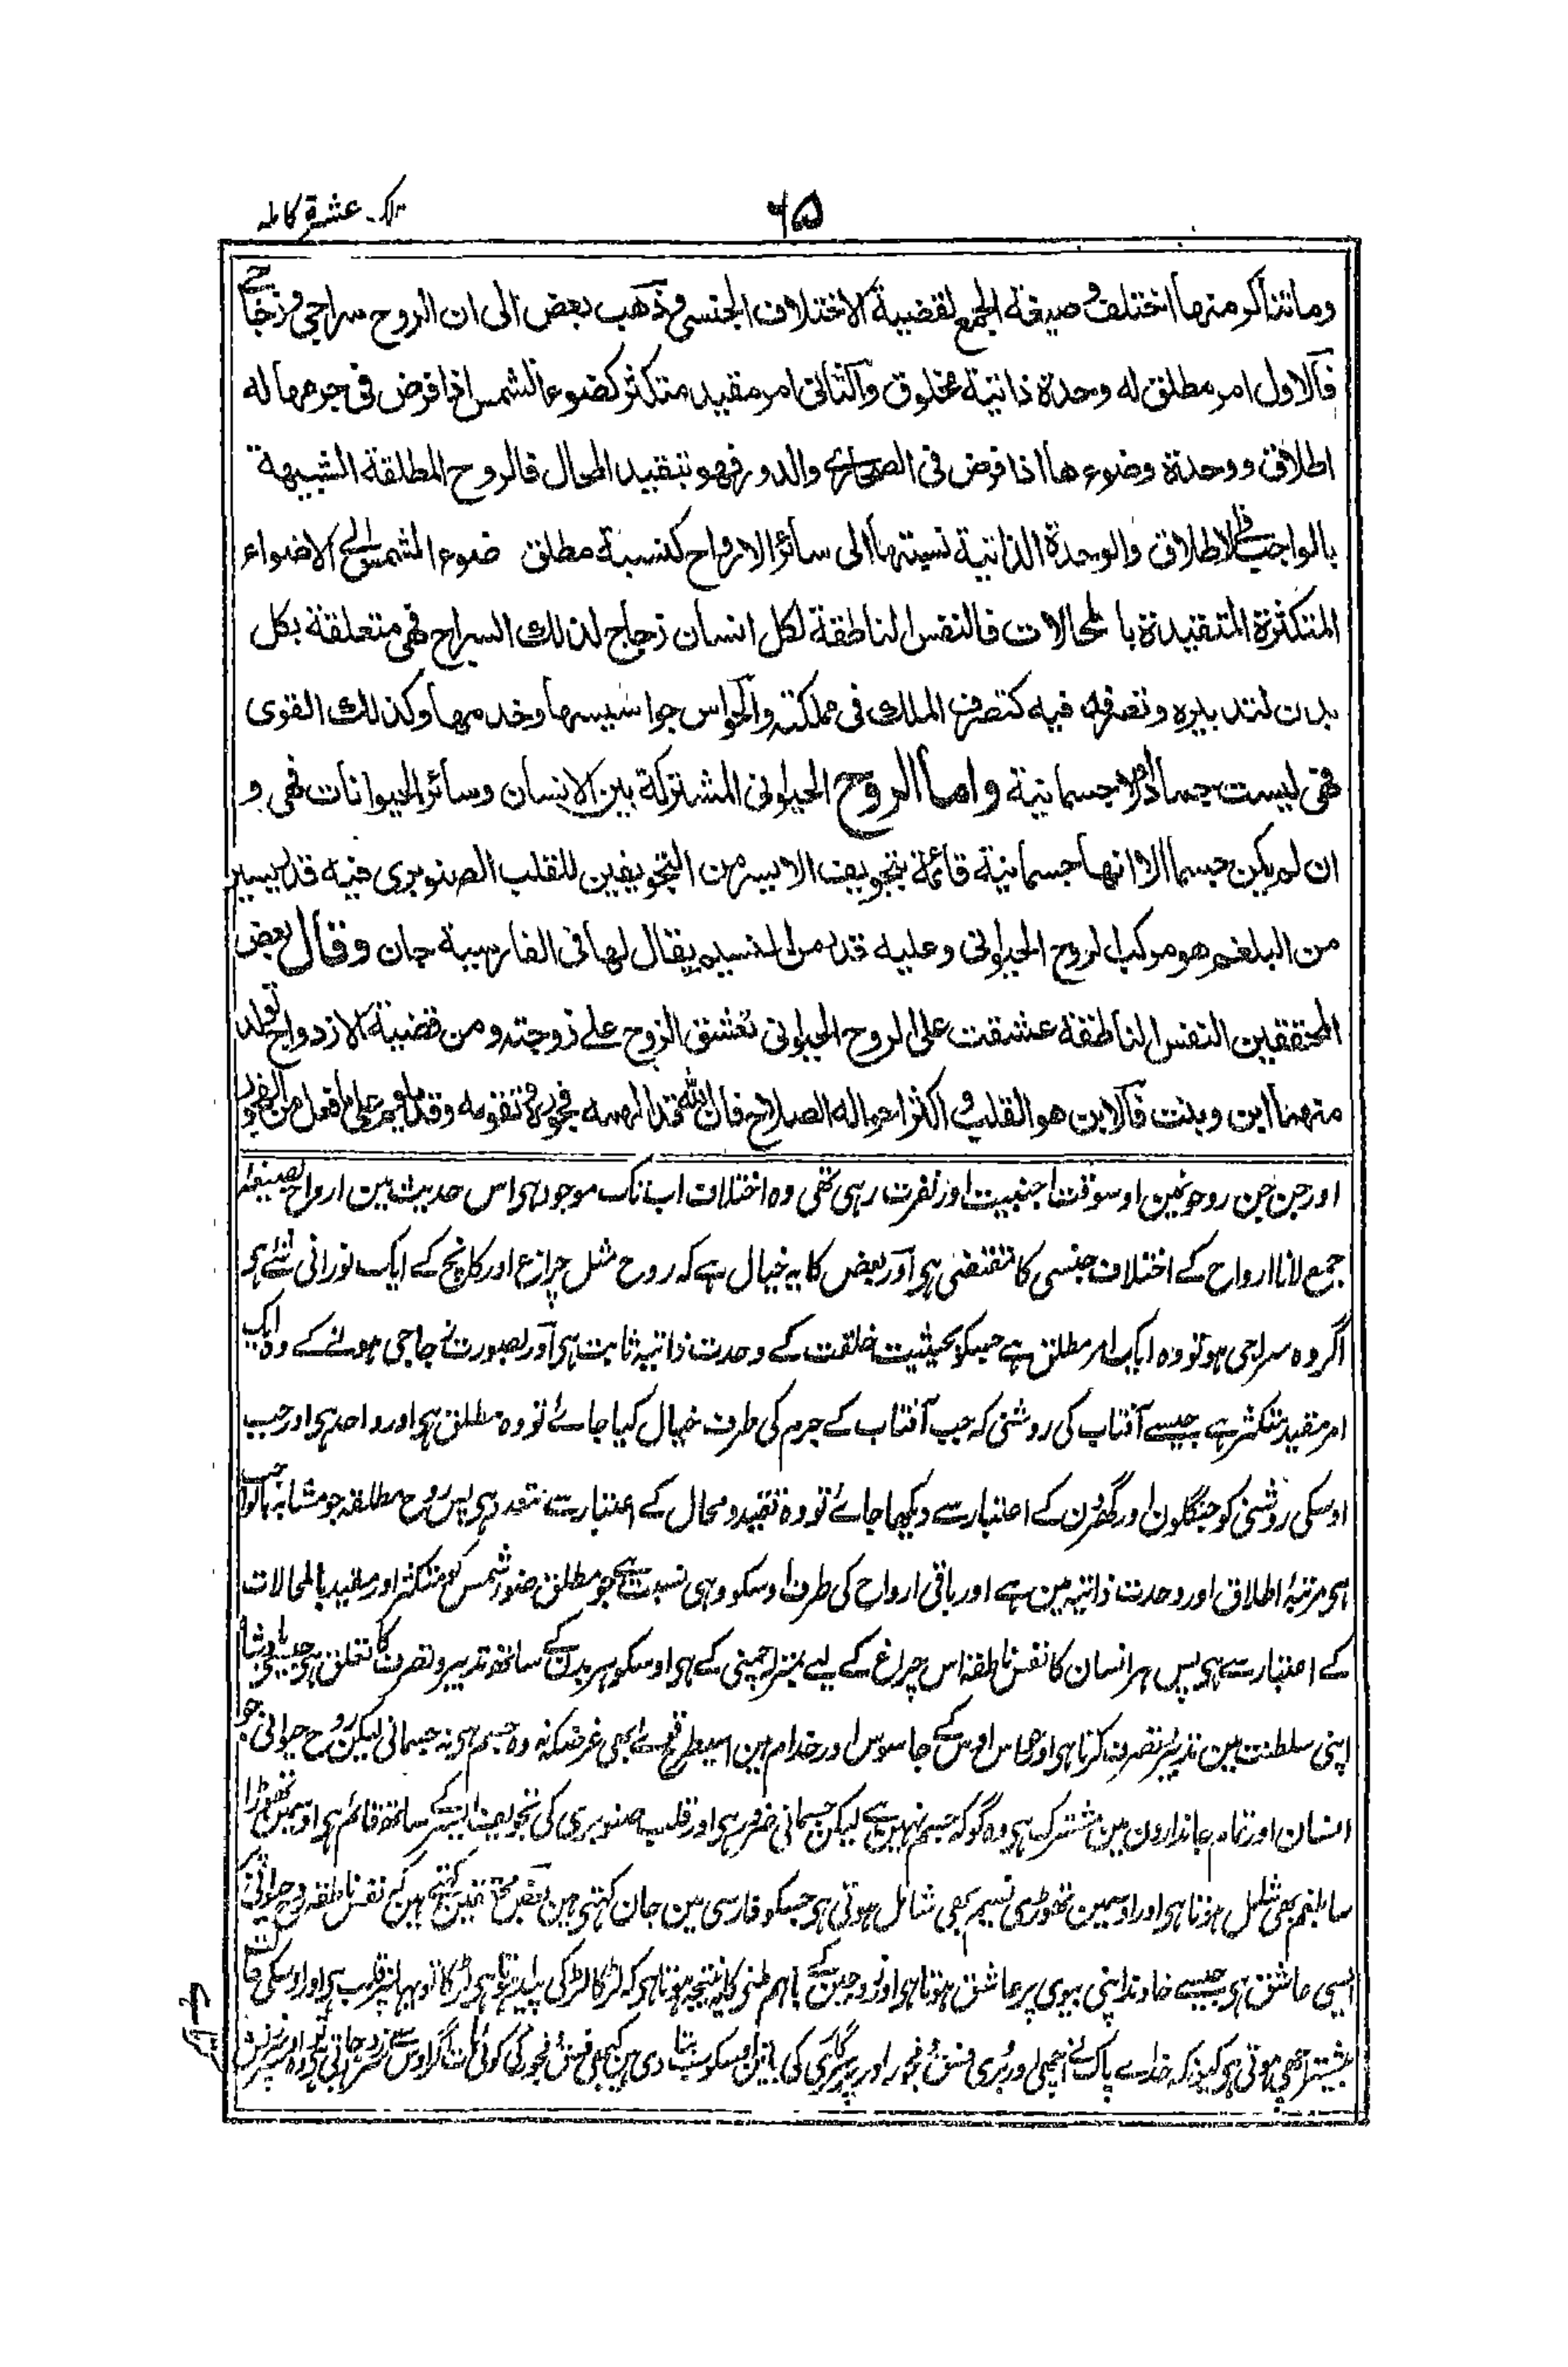 تلک عشرة كاملہ
۶۵
وماتناكر منها اختلف وصيغة الجمع لقضية الاختلاف الجنسى وذهب بعض الى ان الروح سراجى وزجاجى
فالاول امر مطلق له وحدة ذاتية مخلوق والثانى امر مقيد متكثر كضوء الشمس اذا فرض فى جرمها له
اطلاق ووحدة وضوءها اذا فرض فى الصحارى والدور فهو بتقيد المحال فالروح المطلقة الشبيهة
بالواجب فى الاطلاق والوحدة الذاتية نسبتها الى سائر الارواح كنسبة مطلق ضوء الشمس الى الاضواء
المتكثرة المتقيدة بالمحالات فالنفس الناطقة لكل انسان زجاج لذلك السراج فهى متعلقة بكل
بدن لتدبيره وتصرفه فيه كتصرف الملك فى مملكته والحواس جواسيسها وخدمها وكذلك القوى
فهى ليست جسما ولا جسمانية واما الروح الحيوانى المشتركة بين الانسان وسائر الحيوانات فهى و
ان لم يكن جسما الا انها جسمانية قائمة بتجويف الايسر من التجويفين للقلب الصنوبرى فيه قدر يسير
من البلغم هو مركب لروح الحيوانى وعليه قدر من النسيم يقال لها فى الفارسية جان وقال بعض
المحققين النفس الناطقة عشقت على الروح الحيوانى تعشق الزوج على زوجته ومن قضية الازدواج تولد
منهما ابن وبنت فالابن هو القلب و اكثر احواله الصلاح فان الله قد الهمه فجوره وتقوىه وقد على ما فعل من الفجور
اور جن جن روحونمین اوسوقت اجنبیت اور نفرت رہی تھی وہ اختلاف اب تک موجود ہی اس حدیث مین ارواح بصیغۂ
جمع لانا ارواح کے اختلاف جنسی کا مقتضی ہی اور بعض کا یہ خیال ہے کہ روح مثل چراغ اور کانچ کے ایک نورانی شئے ہی
اگر وہ سراجی ہو تو وہ ایک امر مطلق ہے جسکو بحیثیت خلقت کے وحدت ذاتیہ ثابت ہی اور بصورت زجاجی ہونے کے وہ ایک
امر مقید متکثر ہے جیسے آفتاب کی روشنی کہ جب آفتاب کے جرم کی طرف خیال کیا جائے تو وہ مطلق ہی اور واحد ہی اور جب
اوسکی روشنی کو جنگلون اور گھرون کے اعتبار سے دیکھا جائے تو وہ تقید و محال کے اعتبار سے متعدد ہی پس روح مطلقہ جو مشابہ بالواجب
ہی مرتبۂ اطلاق اور وحدت ذاتیہ مین ہے اور باقی ارواح کی طرف اوسکو وہی نسبت ہے جو مطلق ضوء شمس کو متکثر اور مقید بالمحالات
کے اعتبار سے ہی پس ہر انسان کا نفس ناطقہ اس چراغ کے لیے بمنزلہ چمنی کے ہی اوسکو ہر بدن کے ساتھ تدبیر و تصرف کا تعلق ہی جیسا بادشاہ
اپنی سلطنت مین تدبیر و تصرف کرتا ہی اور حواس اوس کے جاسوس اور خدام مین اسیطرح قوے بھی غرضکہ نہ وہ جسم ہی نہ جسمانی لیکن روح حیوانی جو
انسان اور تمام جاندارون مین مشترک ہی وہ گو کہ جسم نہین ہے لیکن جسمانی ضرور ہی اور قلب صنوبری کی تجویف ایسر کے ساتھ قائم ہی اوسمین تھوڑا
سا بلغم بھی شامل ہوتا ہی اور اوسمین تھوڑی نسیم بھی شامل ہوتی ہی جسکو فارسی مین جان کہتی ہین بعض محققین کہتے ہین کہ نفس ناطقہ روح حیوانی
ایسی عاشق ہی جیسے خاوند اپنی بیوی پر عاشق ہوتا ہی اور زوجین کے باہم ملنے کا یہ نتیجہ ہوتا ہی کہ لڑکا لڑکی پیدا ہوتا ہی لڑکا تو یہان پر قلب ہی اور اوسکی
بیشتر اچھی ہوتی ہی کیونکہ خداے پاک نے اچھی اور بری فسق فجور اور پرہیزگاری کی باتین اوسکو بتا دی ہین کبھی فسق فجور کی کوئی بات اگر اوس سے سرزد